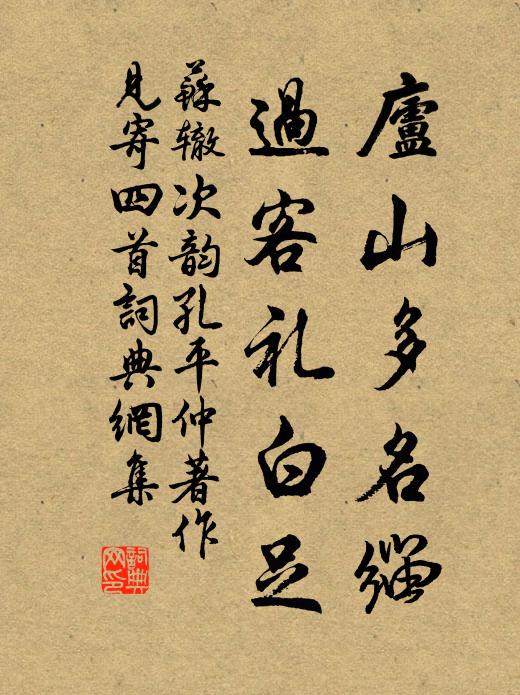 廬山多名緇
過客礼白足
蘇辙次韵孔平仲著作
見寄四首詞典網集
詞典网印